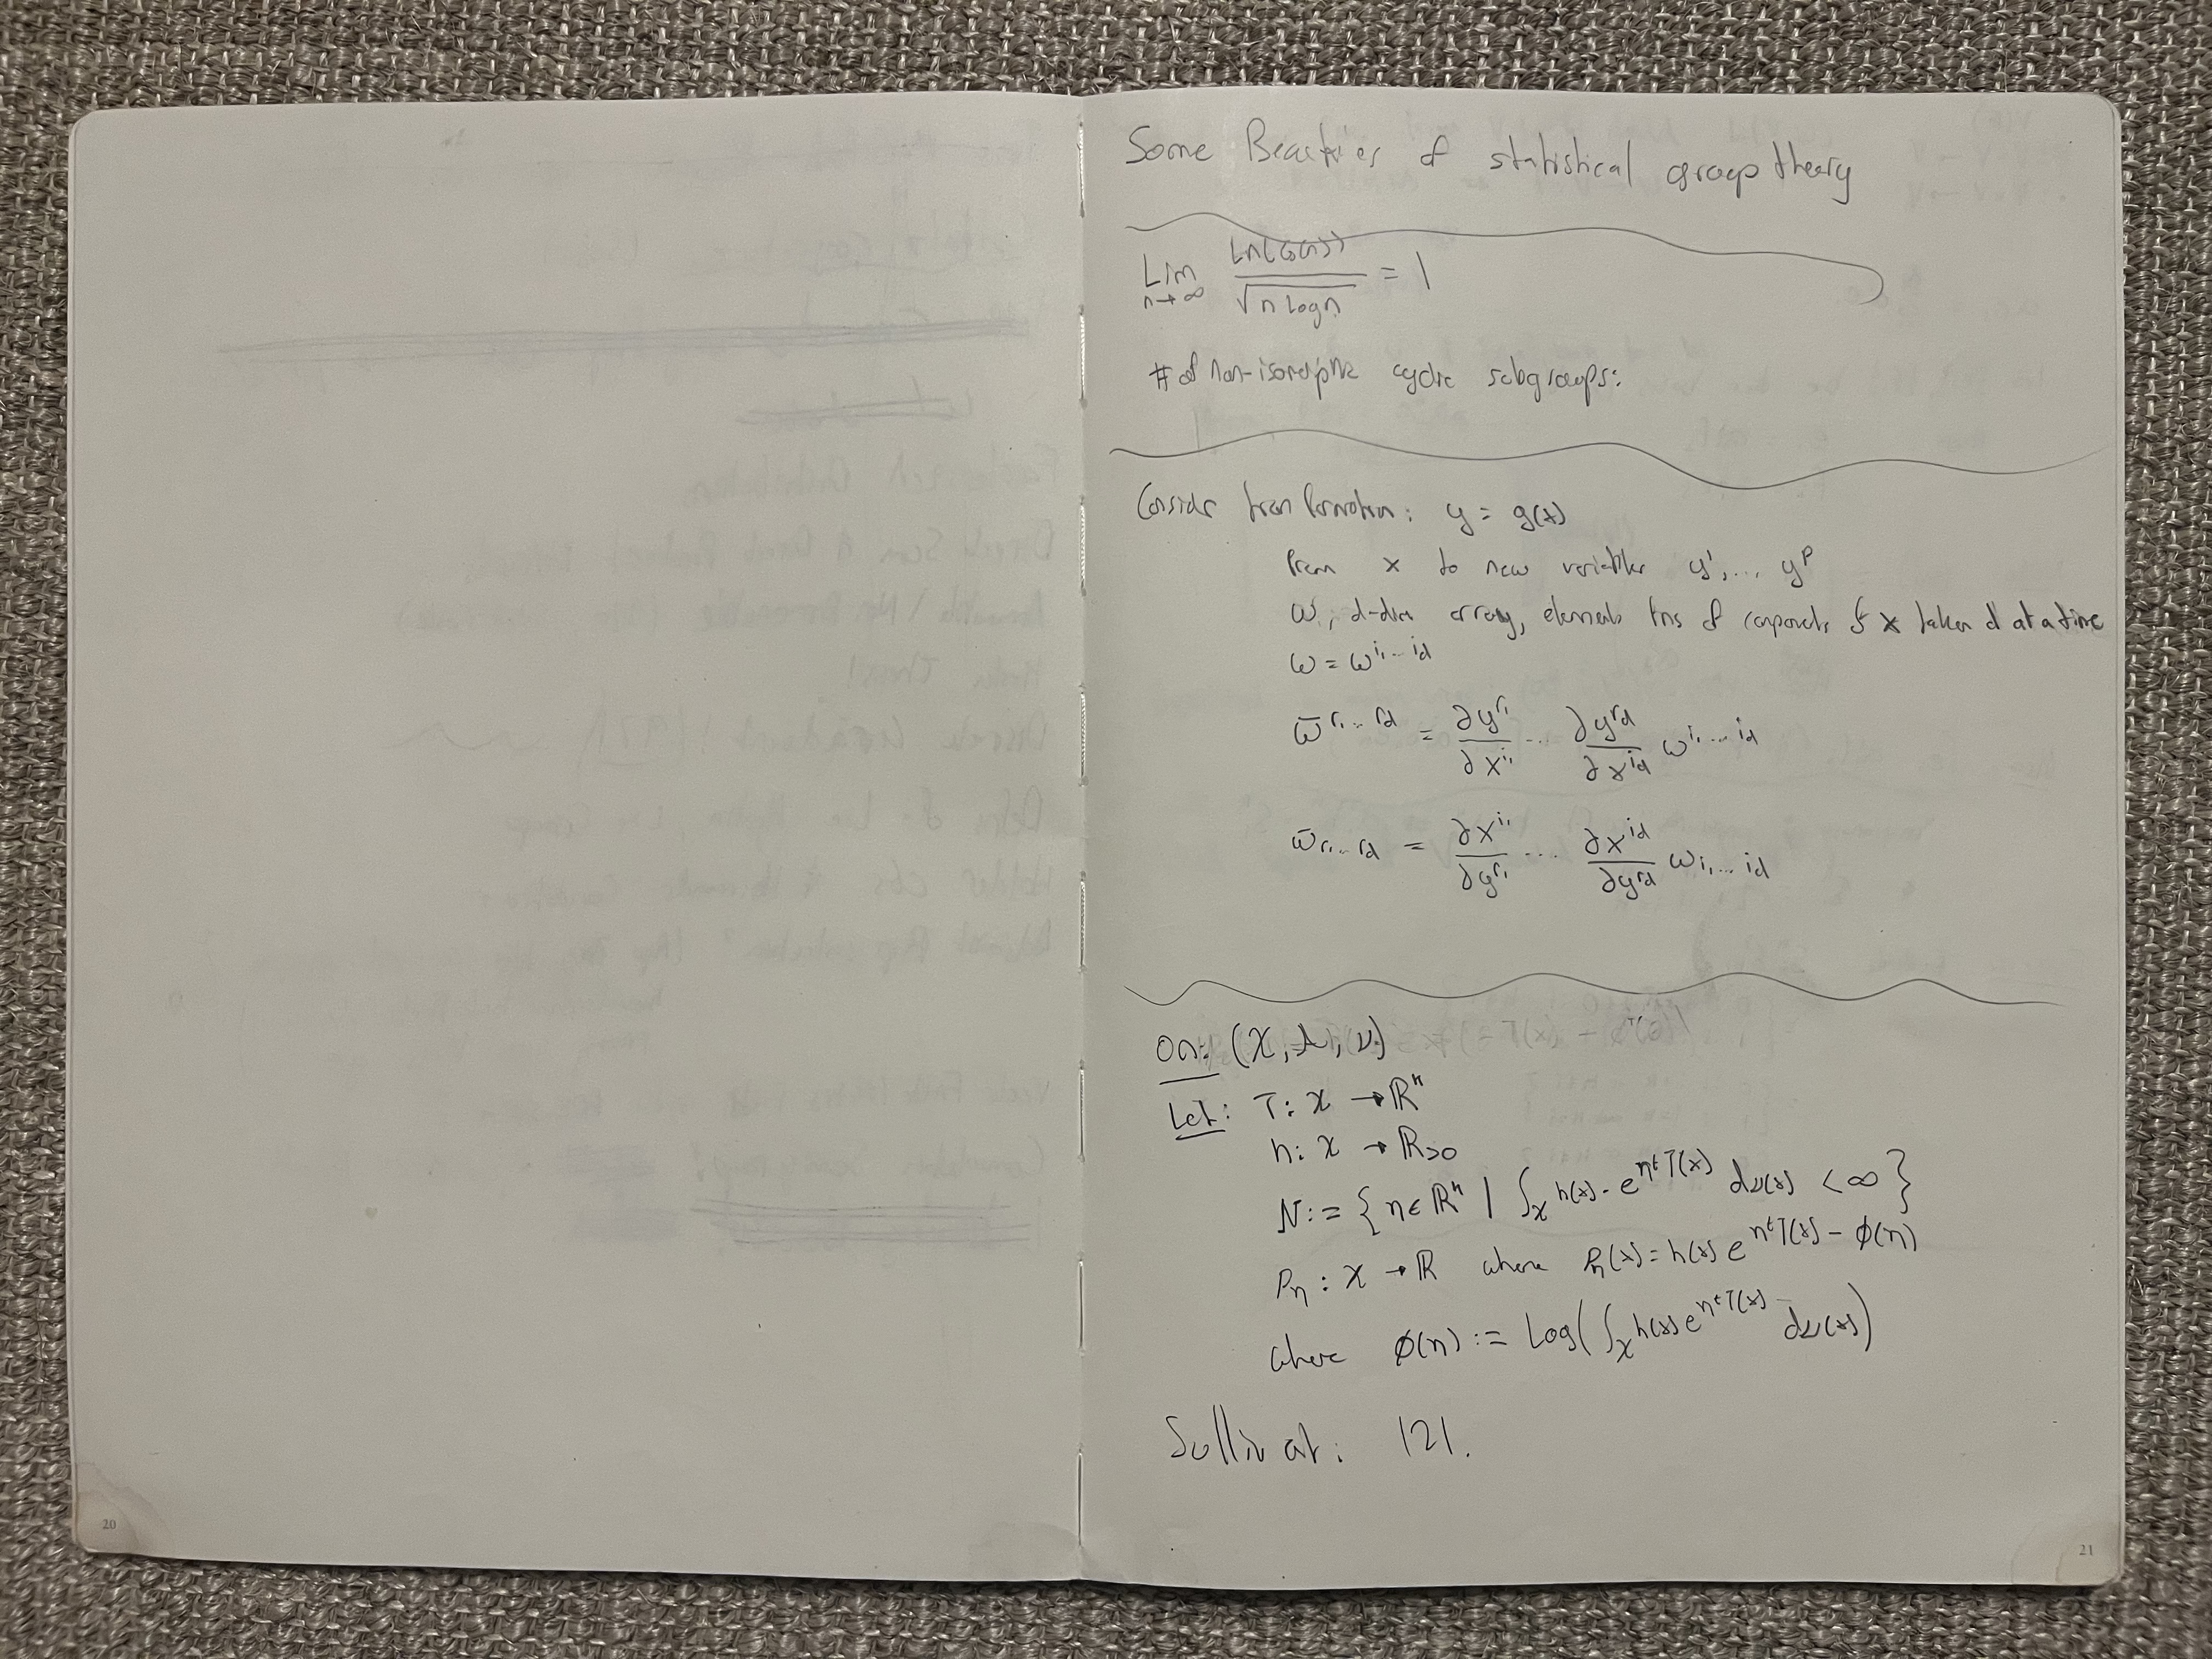 20
Some Beauties of statistical group theory
Lim n→∞ Ln(G(n)) / √(n log n) = 1
# of non-isomorphic cyclic subgroups:
Consider transformation: y = g(x)
from x to new variable y¹,... yᵖ
ω, d-dim array, elements fns of components of x taken d at a time
ω = ω^{i₁...i_d}
ω̄^{r₁...r_d} = ∂y^{r₁}/∂x^{i₁} ... ∂y^{r_d}/∂x^{i_d} ω^{i₁...i_d}
ω̄_{r₁...r_d} = ∂x^{i₁}/∂y^{r₁} ... ∂x^{i_d}/∂y^{r_d} ω_{i₁...i_d}
On: (X, A, ν)
Let: T: X → ℝⁿ
h: X → ℝ>0
N := { η ∈ ℝⁿ | ∫_X h(x) · e^{ηᵗT(x)} dν(x) < ∞ }
Pη : X → ℝ where Pη(x) = h(x) e^{ηᵗT(x) - φ(η)}
where φ(η) := Log( ∫_X h(x) e^{ηᵗT(x)} dν(x) )
Sullivan: 121.
21